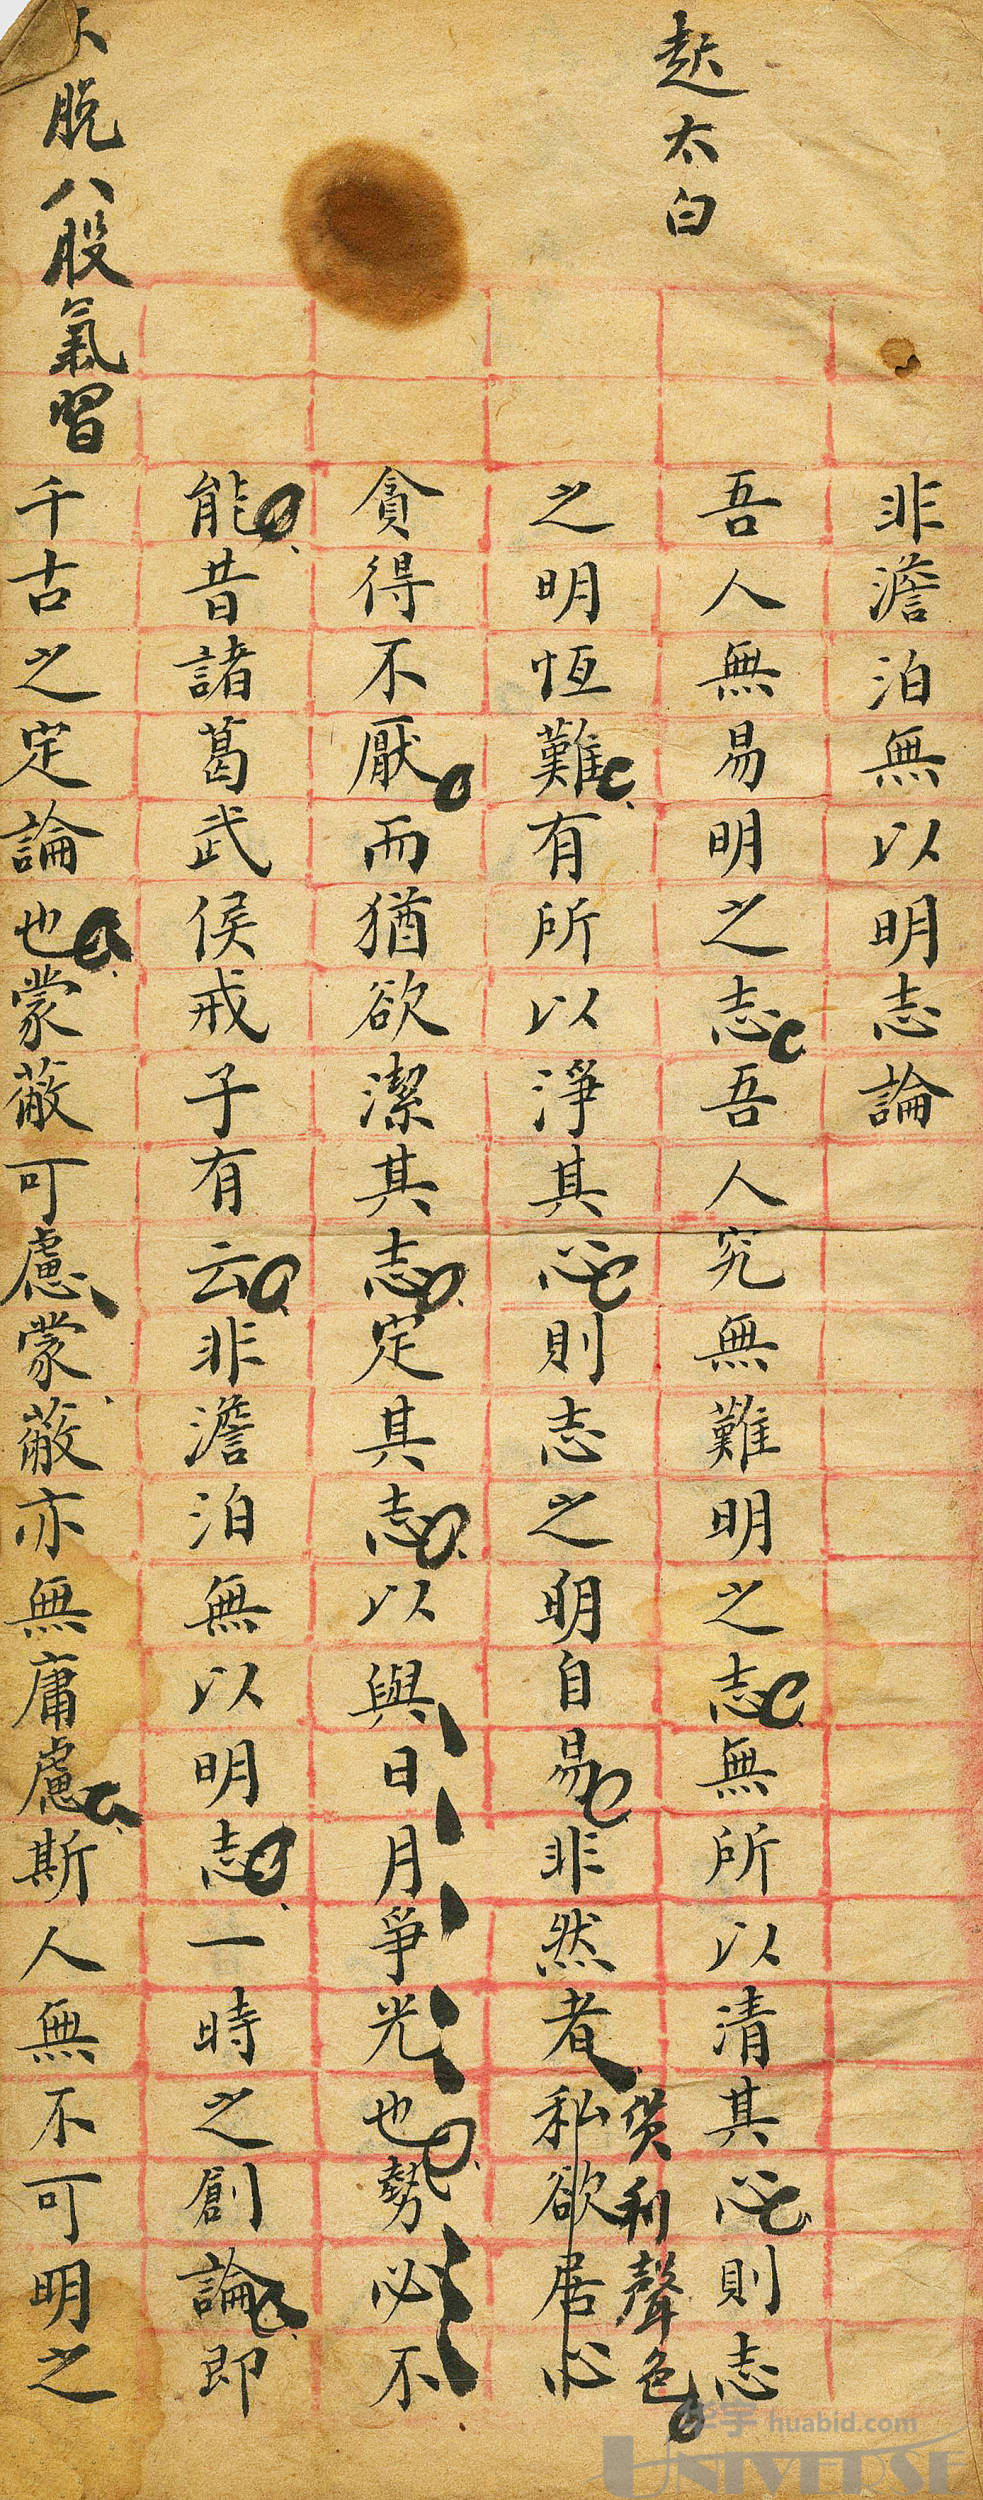 非澹泊無以明志論
起太白
吾人無易明之志吾人究無難明之志無所以清其心則志
之明恆難有所以淨其心則志之明自易非然者私欲居心
貨利聲色
貪得不厭而猶欲潔其志定其志以與日月爭光也勢必不
能昔諸葛武侯戒子有云非澹泊無以明志一時之創論即
不脫八股氣習
千古之定論也蒙蔽可慮蒙蔽亦無庸慮斯人無不可明之
华宇 huabid.com
UNIVERSE